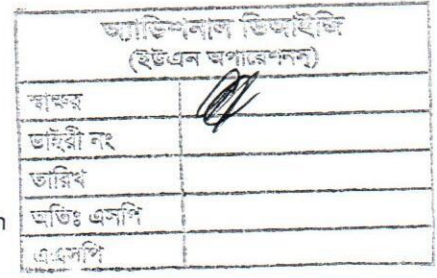 অ্যাডিশনাল ডিআইজি
(ইউএন অপারেশনস্)
স্বাক্ষর
ডাইরী নং
তারিখ
অতিঃ এসপি
এএসপি